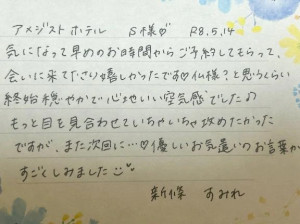 アメジスト ホテル S様♡ R8.5.14
気になって早めのお時間からご予約してもらって、
会いに来て下さり嬉しかったです♡仏様？と思うくらい
終始穏やかで心地いい空気感でした♪
もっと目を見合わせていちゃいちゃ攻めたかった
ですが、また次回に…♡優しいお気遣いのお言葉が
すごくしみました
新條 すみれ